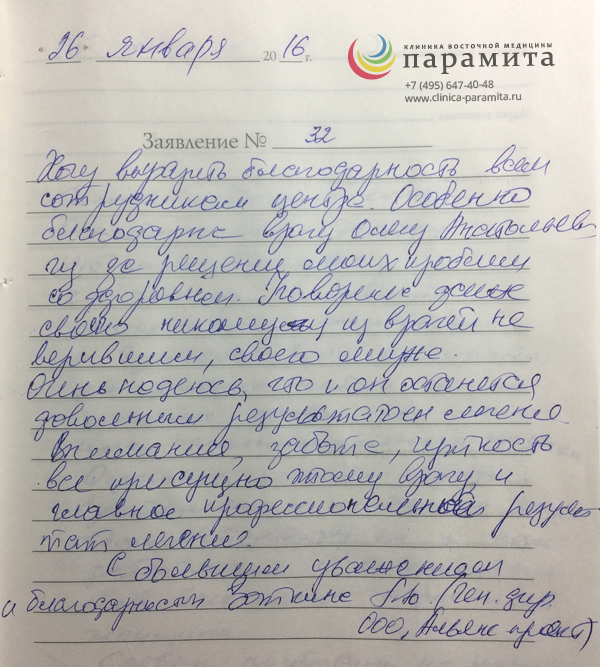 "26" января 2016 г.
КЛИНИКА ВОСТОЧНОЙ МЕДИЦИНЫ
парамита
+7 (495) 647-40-48
www.clinica-paramita.ru
Заявление № 32
Хочу выразить благодарность всем
сотрудникам центра. Особенно
благодарна врачу Олегу Анатольеви
чу за решении моих проблем
со здоровьем. Поверила даже
своего никому из врачей не
верившим, своего мужа.
Очень надеюсь, что и он останется
довольным результатом лечения
Внимание, забота, чуткость
все присущно этому врачу и
главное профессиональной резуль
тат лечения.
С большим уважением
и благодарностью (Ген. дир.
ООО, Альянс проект)